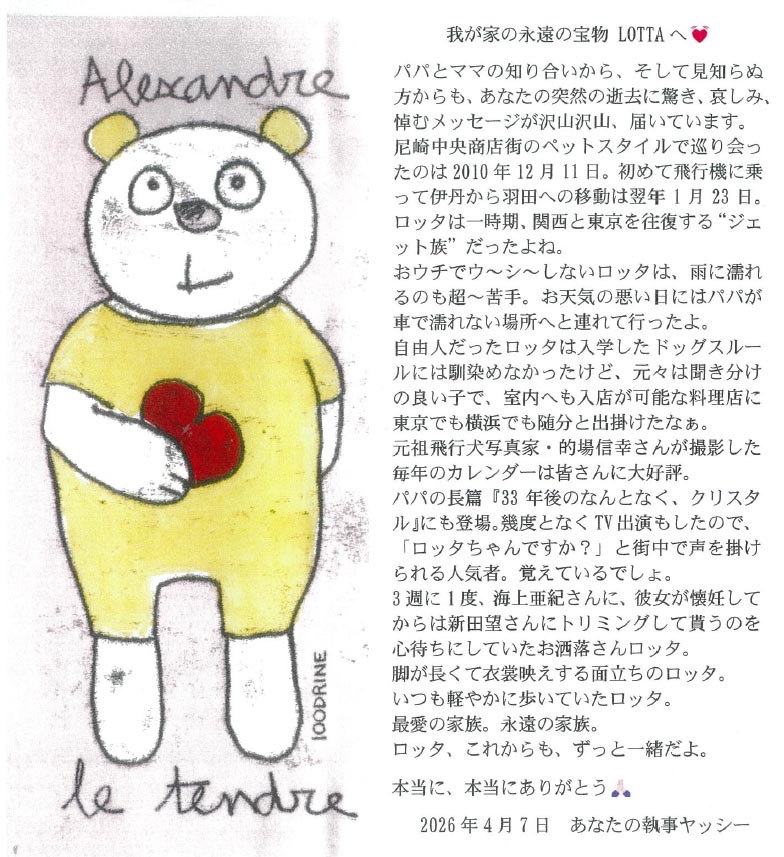 Alexandre
le tendre
LOODRINE
我が家の永遠の宝物 LOTTAへ💓
パパとママの知り合いから、そして見知らぬ
方からも、あなたの突然の逝去に驚き、哀しみ、
悼むメッセージが沢山沢山、届いています。
尼崎中央商店街のペットスタイルで巡り会っ
たのは2010年12月11日。初めて飛行機に乗
って伊丹から羽田への移動は翌年1月23日。
ロッタは一時期、関西と東京を往復する“ジェ
ット族”だったよね。
おウチでウ〜シ〜しないロッタは、雨に濡れ
るのも超〜苦手。お天気の悪い日にはパパが
車で濡れない場所へと連れて行ったよ。
自由人だったロッタは入学したドッグスルー
ルには馴染めなかったけど、元々は聞き分け
の良い子で、室内へも入店が可能な料理店に
東京でも横浜でも随分と出掛けたなぁ。
元祖飛行犬写真家・的場信幸さんが撮影した
毎年のカレンダーは皆さんに大好評。
パパの長篇『33年後のなんとなく、クリスタ
ル』にも登場。幾度となくTV出演もしたので、
「ロッタちゃんですか?」と街中で声を掛け
られる人気者。覚えているでしょ。
3週に1度、海上亜紀さんに、彼女が懐妊して
からは新田望さんにトリミングして貰うのを
心待ちにしていたお洒落さんロッタ。
脚が長くて衣裳映えする面立ちのロッタ。
いつも軽やかに歩いていたロッタ。
最愛の家族。永遠の家族。
ロッタ、これからも、ずっと一緒だよ。
本当に、本当にありがとう🙏🏻
2026年4月7日　あなたの執事ヤッシー